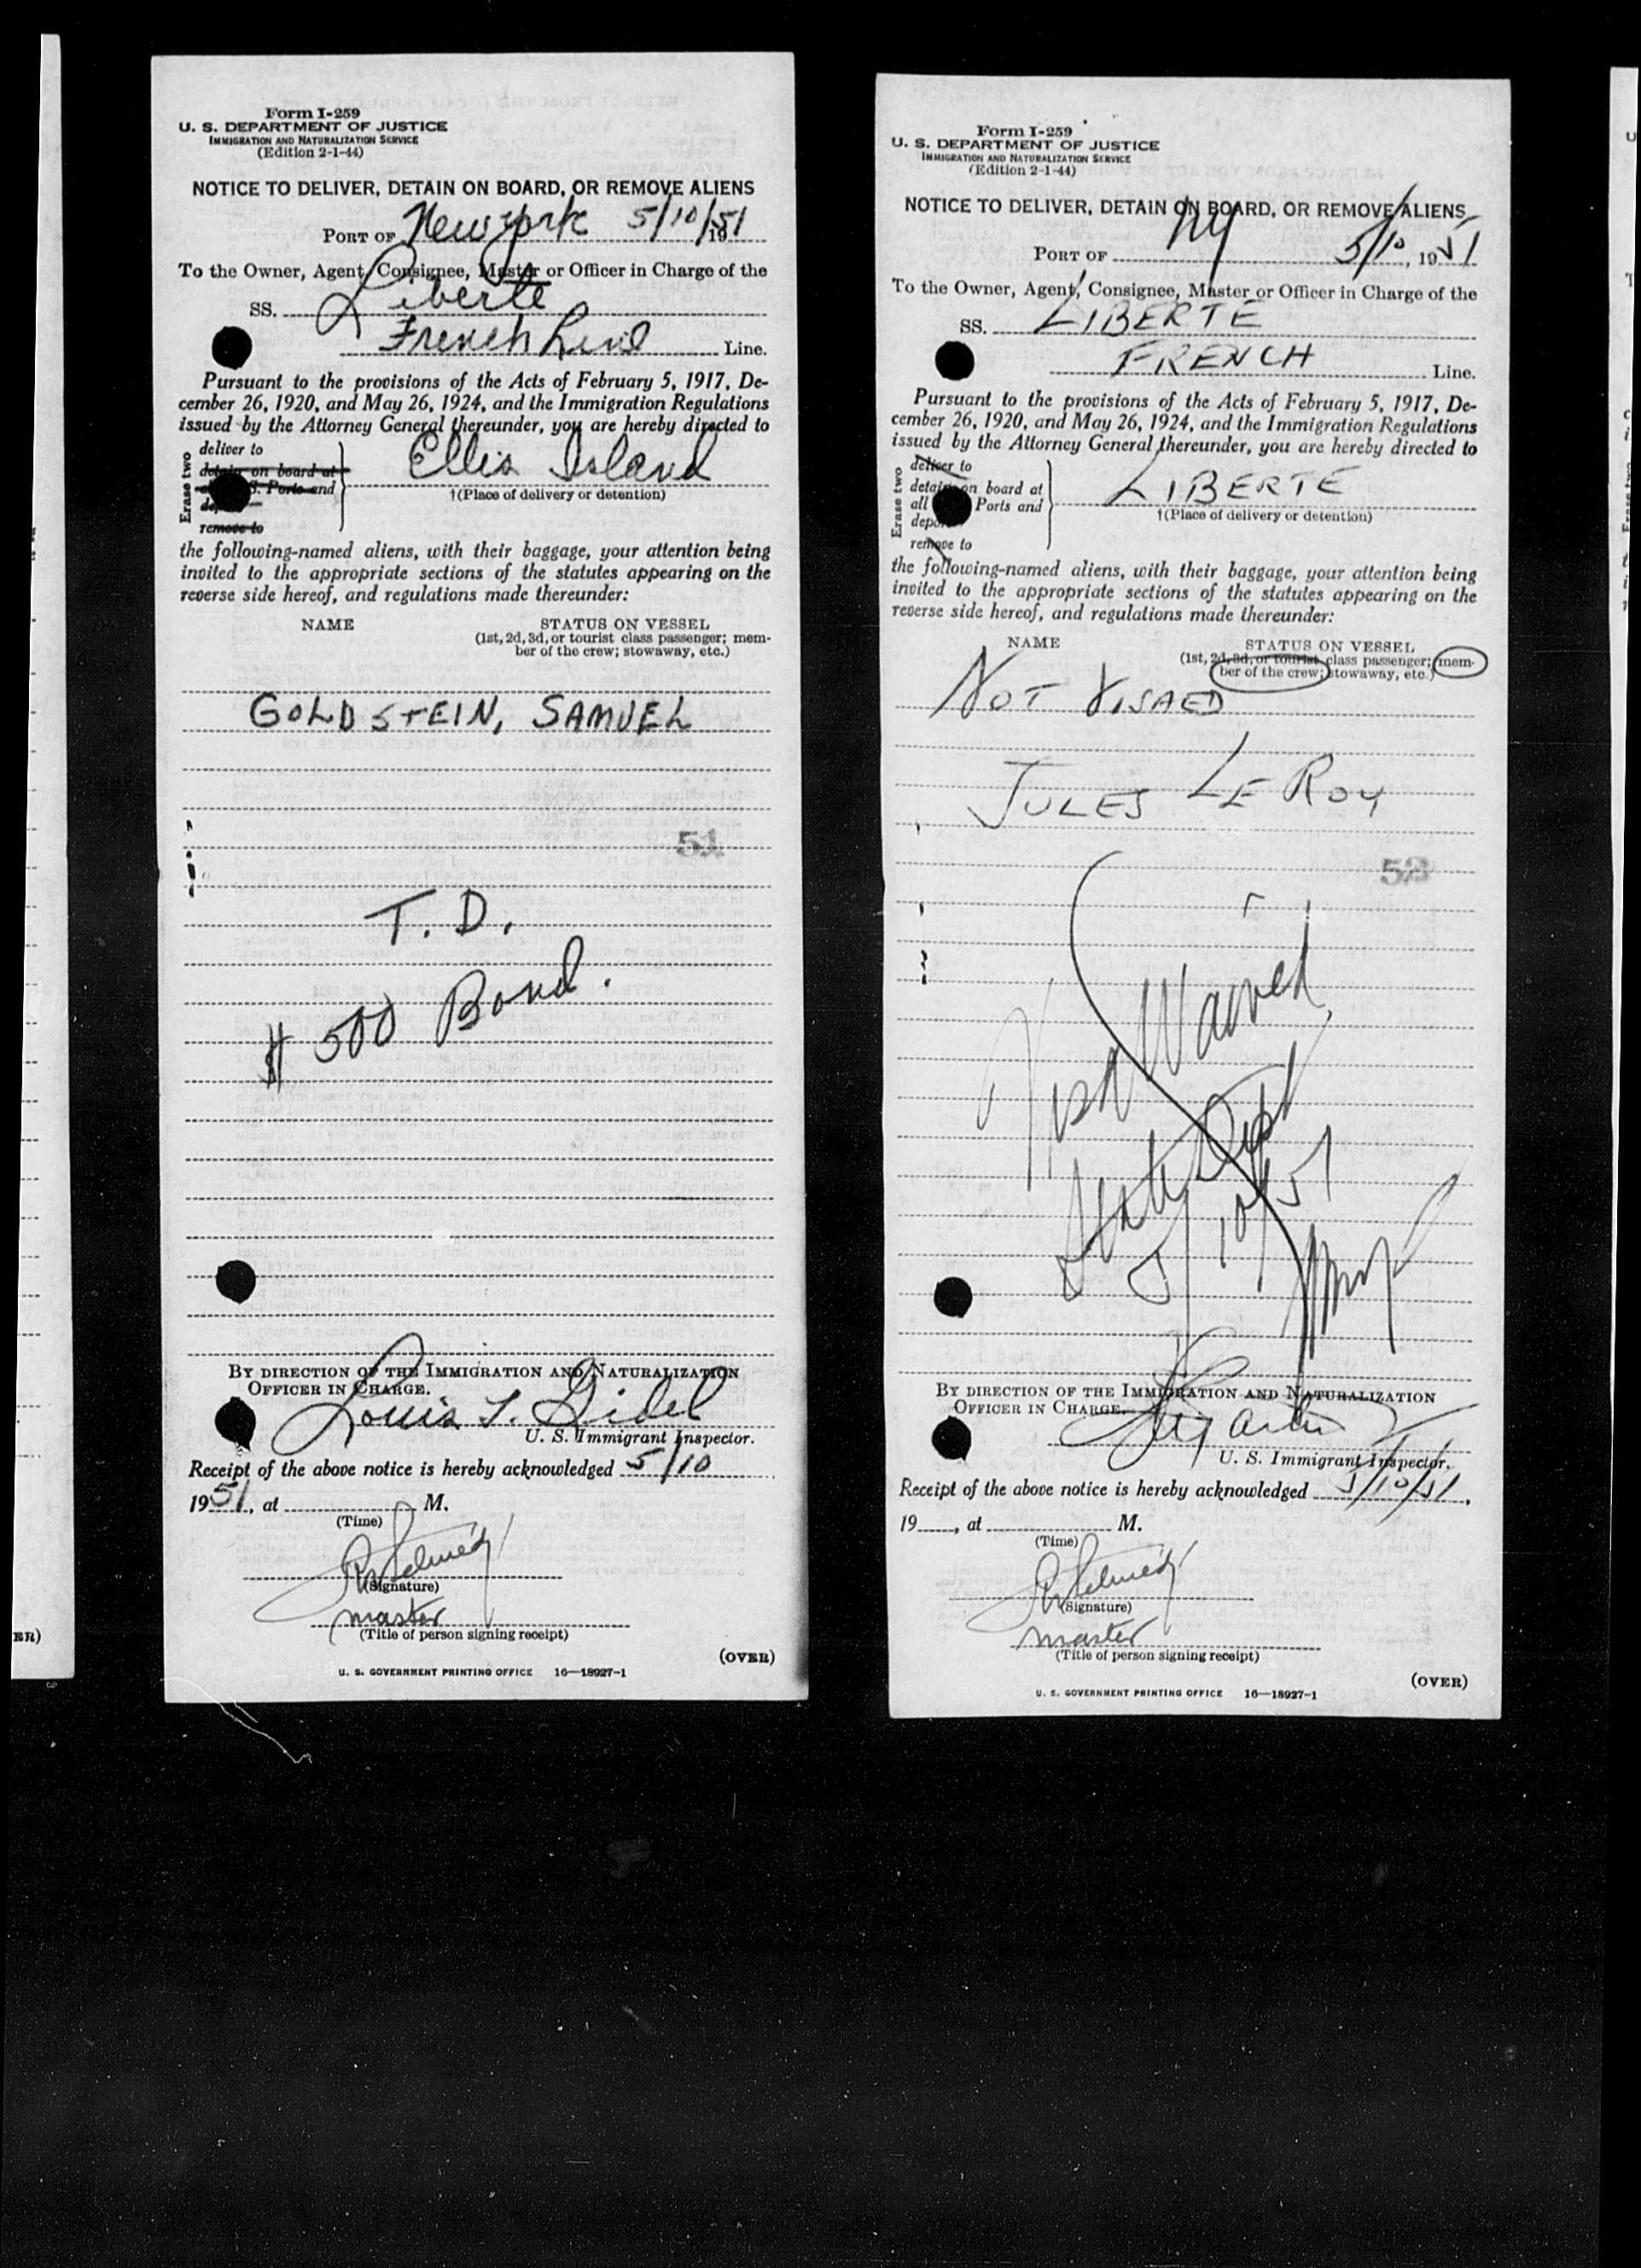 Form I-259
U. S. DEPARTMENT OF JUSTICE
IMMIGRATION AND NATURALIZATION SERVICE
(Edition 2-1-44)
NOTICE TO DELIVER, DETAIN ON BOARD, OR REMOVE ALIENS
PORT OF New York 5/10/1951
To the Owner, Agent, Consignee, Master or Officer in Charge of the
SS. Liberte
French Line Line.
Pursuant to the provisions of the Acts of February 5, 1917, De-
cember 26, 1920, and May 26, 1924, and the Immigration Regulations
issued by the Attorney General thereunder, you are hereby directed to
Erase two
deliver to
detain on board at
S. Ports and
remove to
Ellis Island
†(Place of delivery or detention)
the following-named aliens, with their baggage, your attention being
invited to the appropriate sections of the statutes appearing on the
reverse side hereof, and regulations made thereunder:
NAME STATUS ON VESSEL
(1st, 2d, 3d, or tourist class passenger; mem-
ber of the crew; stowaway, etc.)
GOLDSTEIN, SAMUEL
51
T. D.
$500 Bond.
BY DIRECTION OF THE IMMIGRATION AND NATURALIZATION
OFFICER IN CHARGE.
Louis S. Gidel
U. S. Immigrant Inspector.
Receipt of the above notice is hereby acknowledged 5/10
1951, at M.
(Time)
(Signature)
master
(Title of person signing receipt)
(OVER)
U. S. GOVERNMENT PRINTING OFFICE 16—18927-1
Form I-259
U. S. DEPARTMENT OF JUSTICE
IMMIGRATION AND NATURALIZATION SERVICE
(Edition 2-1-44)
NOTICE TO DELIVER, DETAIN ON BOARD, OR REMOVE ALIENS
PORT OF NY 5/10, 1951
To the Owner, Agent, Consignee, Master or Officer in Charge of the
SS. LIBERTE
FRENCH Line.
Pursuant to the provisions of the Acts of February 5, 1917, De-
cember 26, 1920, and May 26, 1924, and the Immigration Regulations
issued by the Attorney General thereunder, you are hereby directed to
Erase two
deliver to
detain on board at
all Ports and
remove to
LIBERTE
†(Place of delivery or detention)
the following-named aliens, with their baggage, your attention being
invited to the appropriate sections of the statutes appearing on the
reverse side hereof, and regulations made thereunder:
NAME STATUS ON VESSEL
(1st, 2d, 3d, or tourist class passenger; mem-
ber of the crew; stowaway, etc.)
NOT VISAED
JULES LE ROY
52
Visa Waived
State Dept
5/10/51
BY DIRECTION OF THE IMMIGRATION AND NATURALIZATION
OFFICER IN CHARGE.
U. S. Immigrant Inspector.
Receipt of the above notice is hereby acknowledged 5/10/51,
19, at M.
(Time)
(Signature)
master
(Title of person signing receipt)
(OVER)
U. S. GOVERNMENT PRINTING OFFICE 16—18927-1